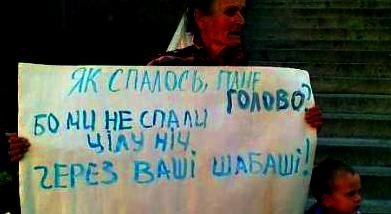 ЯК СПАЛОСЬ, ПАНЕ
ГОЛОВО?
БО МИ НЕ СПАЛИ
ЦІЛУ НІЧ
ЧЕРЕЗ ВАШІ ШАБАШІ!